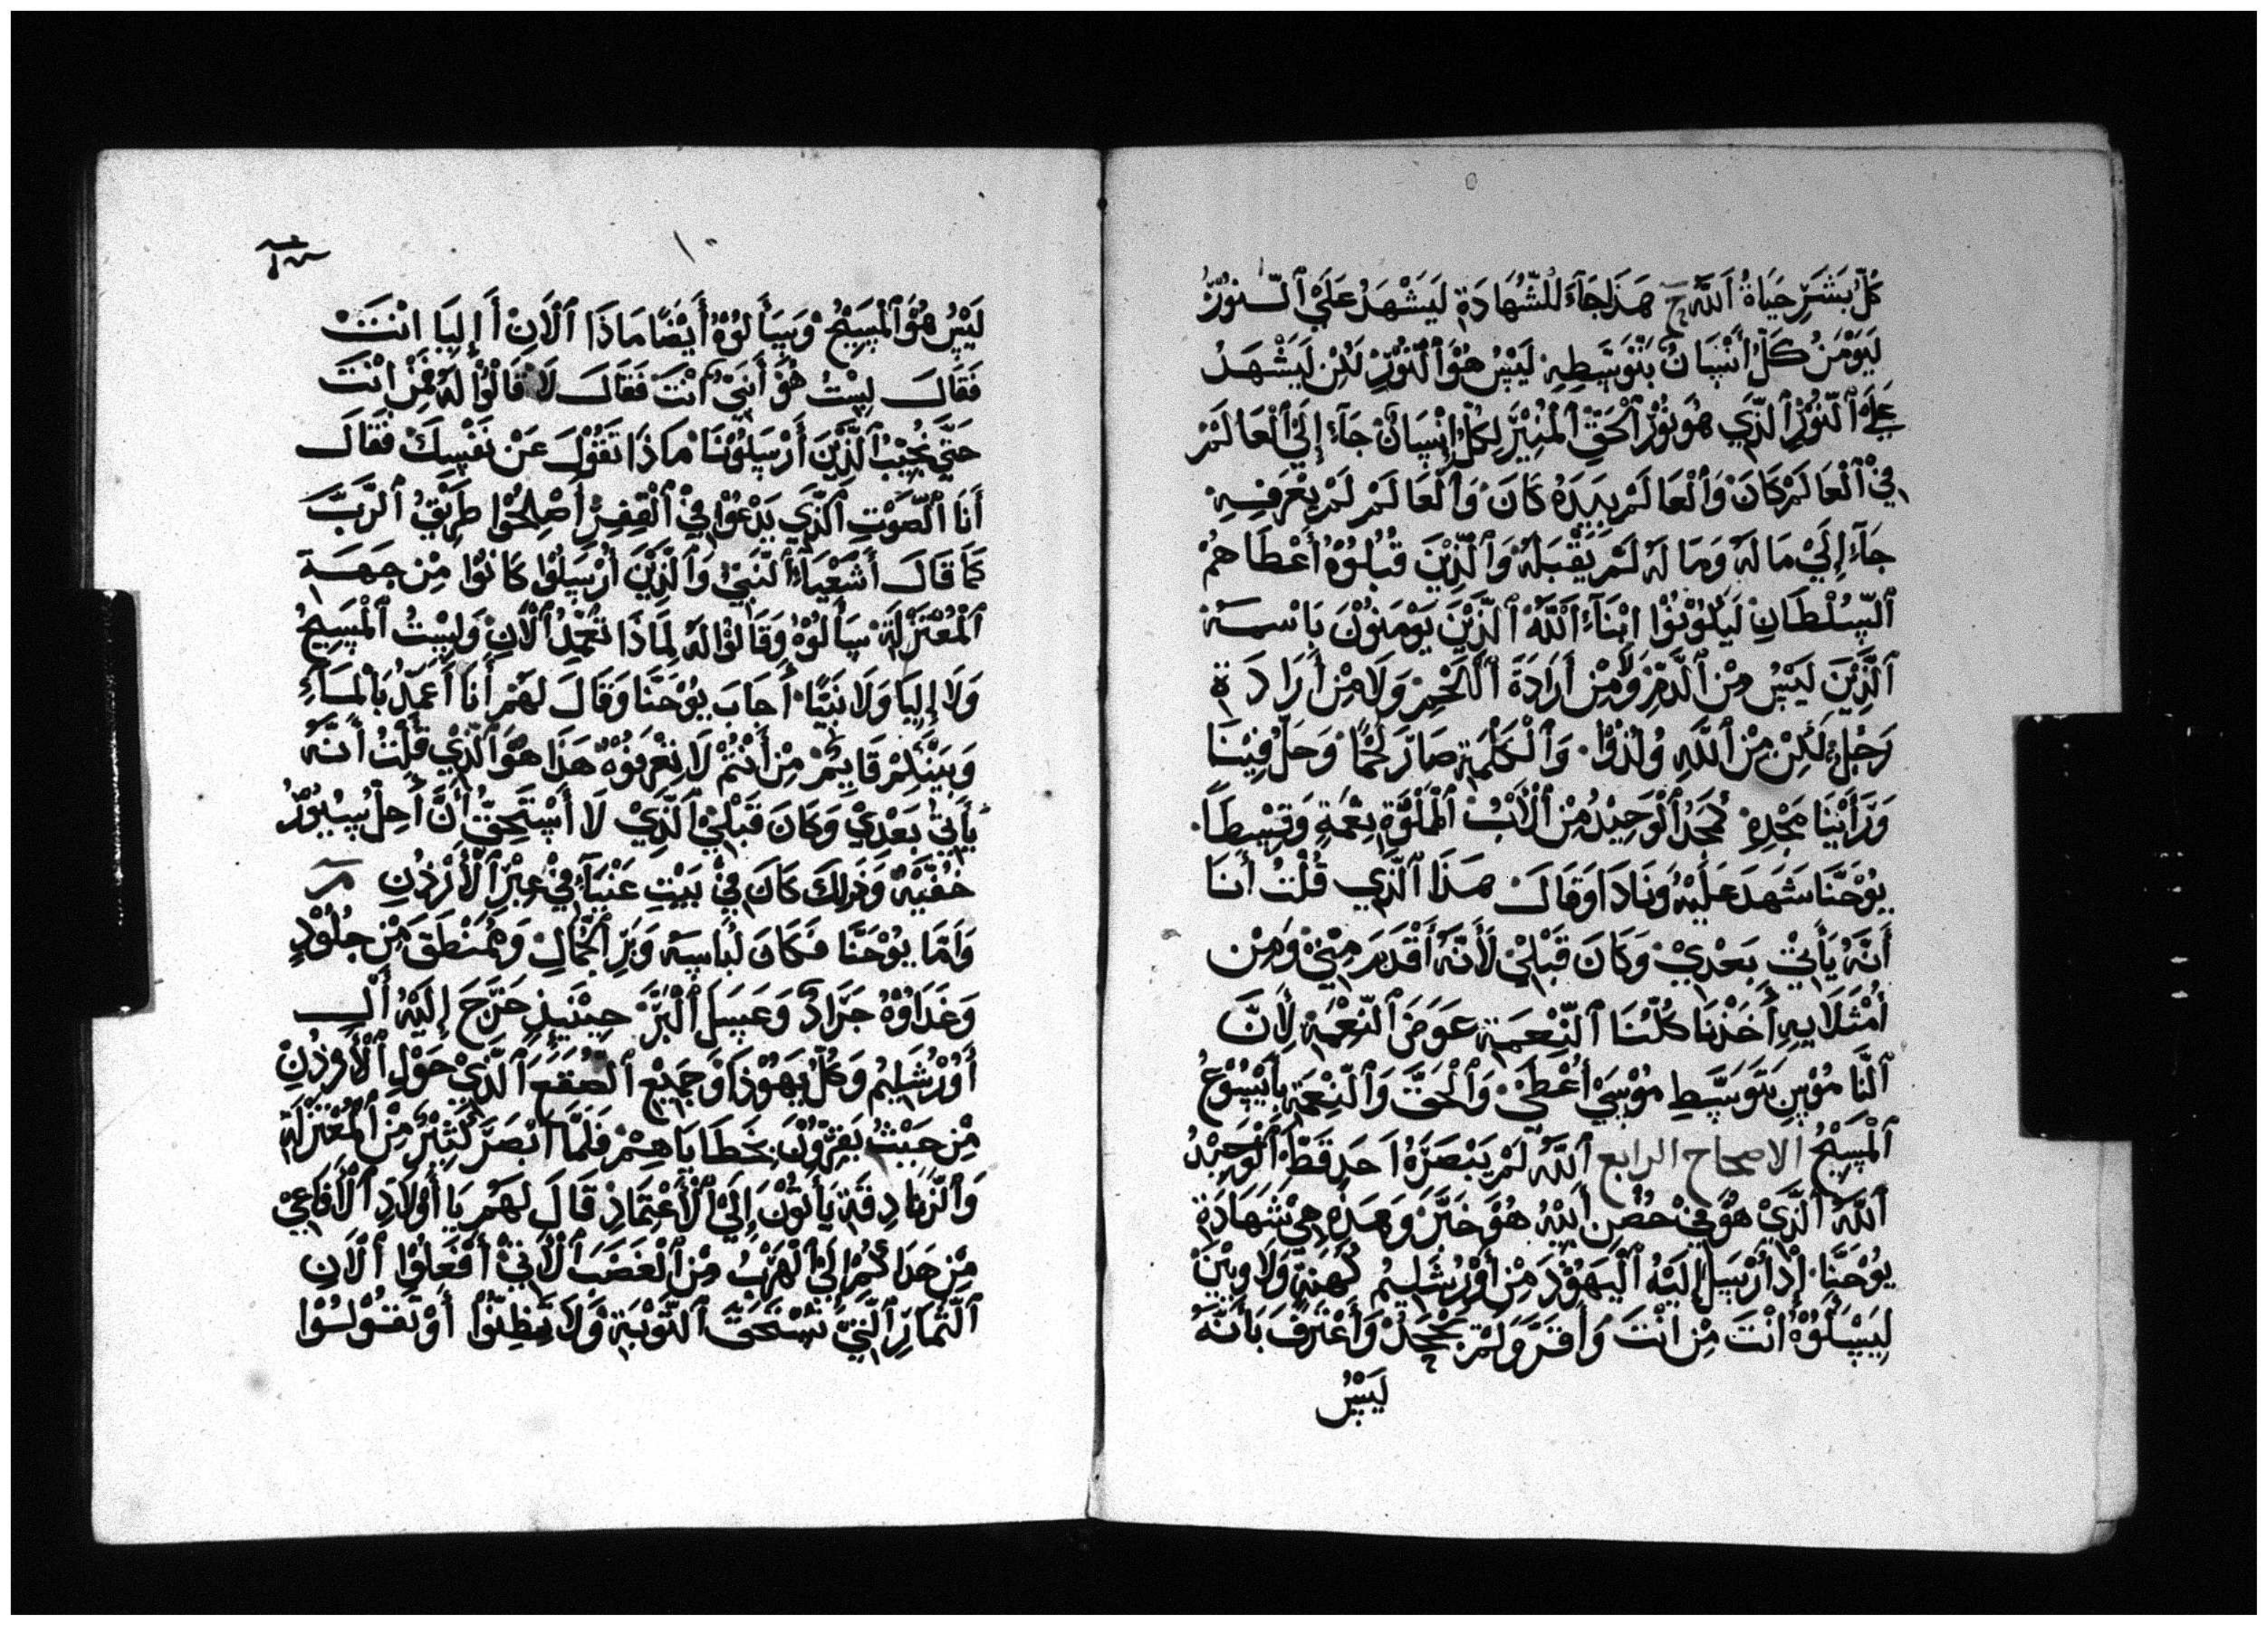 كُلُّ بَشَرٍ حَيَاةُ ٱللَّهِ ح هَذَا جَآءَ لِلشَّهَادَةِ لَيَشْهَدُ عَلَيْ ٱلنُّوْرُ
لَيَوْمَنُ كُلُّ أَنْسَانٌ بَتَوَسَّطِهِ لَيْسَ هُوَ ٱلنُّوْرِ لَكِنْ لَيَشْهَدُ
عَلَيْ ٱلنُّوْرِ ٱلَّذَي هُوَ نُوْرُ ٱلْحَقِّ ٱلْمُنِيْرَ لِكُلِّ إِنْسَانْ جَآءَ إِلَيْ ٱلْعَالَمْ
فِيْ ٱلْعَالَمْ كَانَ وَٱلْعَالَمْ بِيَدَهُ كَانَ وَٱلْعَالَمْ لَمْ يَعْرَفِهِ
جَآءَ إِلَيْ مَا لَهُ وَمَا لَهُ لَمْ يَقْبَلْهُ وَٱلَّذِيْنَ قَبُلُوْهُ أَعْطَاهُمْ
ٱلسُّلْطَانِ لَيَكُوْنُوْا ابْنَآءَ ٱللَّهْ ٱلَّذِيْنَ يَوْمَنُوْنَ بَاسْمَهُ
ٱلَّذِيْنَ لَيْسُ مِنْ ٱلدَّمِّ وَلَا مِنْ أَرَادَةَ ٱللَّحْمِ وَلَا مِنْ أَرَادَةِ
رَجُلٍ لَكِنْ مِنْ ٱللَّهِ وُلِدُوْا وَٱلْكَلِمَةِ صَارَ لَحْمًا وَحَلَّ فِيْنَا
وَرَأَيْنَا مَجْدِهِ كَمَجْدُ ٱلْوَحِيْدُ مْنْ ٱلْأَبْ ٱلْمَلُوَّةِ نِعْمَةٍ وَقِسْطًا
يُوْحَنَّا شَهَدَ عَلَيْهُ وَنَادَا وَقَالَ هَذَا ٱلَّذَي قُلْتُ أَنَا
أَنَّهُ يَأْتِيْ بَعْدِيْ وَكَانَ قَبْلِيْ لَأَنَّهُ أَقْدَمَ مِنِّيْ وَمِنْ
أَمْثَلَايِهِ أَخَذْنَا كُلُّنَا ٱلنِّعْمَةِ عَوَضَ ٱلنِّعْمَةِ لِأَنَّ
ٱلنَّامُوْسِ بَتَوَسَّطِ مُوْسَيْ أُعْطَيْ وَٱلْحَقَّ وَٱلنِّعْمَةِ بِأَيْسُوْعَ
ٱلْمَسِيْحُ الاصحاح الرابع ٱللَّهُ لَمْ يَبْصَرَهُ أَحَدٍ قَطْ ٱلْوَحَيْدُ
ٱللَّهُ ٱلَّذِيْ هُوَ فِيْ حُضْنِ أَبِيْهُ هُوَ خَبَّرَ وَهَذِهِ هِيْ شَهَادَةِ
يُوْحَنَّا إِذْ أَرْسَلَ إِلَيْهُ ٱلْيَهُوْدَ مِنْ أَوْرُشْلِيْمُ كَهَنَةً وَلَاوِيْيَنْ
لِيَسْأَلُوْهُ أَنْتَ مِنْ أَنْتَ وَأَقَرَّ وَلَمْ يَجْحَدْ وَأَعْتَرَفَ بَأَنَّهُ
لَيْسُ
١٠
لَيْسُ هُوَ ٱلْمَسِيْحُ وَسَيَأَلُوْهُ أَيْضًا مَاذَا ٱلْأَنِ أَ إِلِيَا انْتَ
فَقَالَ لِيْسْتُ هُوَ أَنَبِيْ أَنْتَ فَقَالَ لَا قَالُوْا لَهُ فَمِنْ انْتَ
حَتَّيْ نُجِيْبُ ٱلَّذِيْنَ أَرْسَلُوْنَا مَاذَا تَقُوْلَ عَنْ نَفْسِكَ فَقَالَ
أَنَا ٱلصَّوْتِ ٱلَّذِي يَدْعُوْا فِيْ ٱلْقِفِرْ أَصْلِحُوْا طَرِيْقُ ٱلرَّبَّ
كَمَا قَالَ أَشَعْيَآءُ ٱلنَّبِيْ وَٱلَّذِيْنَ أَرْسَلُوْا كَانُوْا مِنْ جَهَةِ
ٱلْمُعْتَزْلَةْ سَأَلُوْهُ وَقَالُوْا لَهُ لِمَاذَا تَعْمِدُ ٱلْأَنِ وَلِيْسْتُ ٱلْمَسِيْحُ
وَلَا إِلِيَا وَلَا نَبِيًّا أَجَابَ يُوْحَنَّا وَقَالَ لَهُمْ أَنَا أَعَمِّدُ بَالْمَآءِ
وَبَيْنَكِمْ قَايِمْ مِنْ أَنْتُمْ لَا تِعْرَفُوْهُ هَذَا هُوَ ٱلَّذِيْ قُلْتُ أَنَّهُ
يَأْتِيْ بَعْدِيْ وَكَانَ قَبْلِيْ ٱلَّذِيْ لَا أَسْتَحِقُّ أَنَّ أَحِلْ سِيُوْرُ
خُفَّيْهُ وَذَلِكَ كَانَ فِيْ بَيْتِ عَنْيَآءَ فِيْ عِبْرِ ٱلْأُرْدُنِ مر
وَأَمَّا يُوْحَنَّا فَكَانَ لُبَاسَهُ وَبَرِ ٱلْجَمَالِ وَمُمَنْطَقَ مِنْ جُلُوْدِ
وَغَدَاوُهُ جَرَادً وَعَسَلَ ٱلْبَرَّ حِيْنَيِذٍ خَرَجَ إِلَيْهُ أَلِ
أَوْرُشَلِيْمُ وَكُلَّ يَهُوْذَا وَجَمِيْعَ ٱلصُقَعَ ٱلَّذِيْ حَوْلِ ٱلْأُرْدُنِ
مِنْ حَيْثُ يَقِرُّوْنَ بِخَطَايَاهِمْ فَلَمَّا أَبْصَرَ كَثِيْرً مِنْ ٱلْمُعْتَزِلَةِ
وَٱلزَّنَادِقَةِ يَأَتُوْنَ إِلَيْ ٱلْأَعْتِمَادِ قَالَ لَهُمْ يَا أَوْلَادِ ٱلْأَفَاعِيْ
مِنْ هَدَاكُمْ إِلَيْ ٱلْهَرْبُ مِنْ ٱلْغَضَبَ ٱلْأَتِيْ أَفْعَلُوْا ٱلْأَنِ
ٱلثِّمَارِ ٱلَّتِيْ تَسْتَحَقَّ ٱلتَّوْبَةِ وَلَا تَظِنُّوْا أَوْ تَقُوْلُوْا